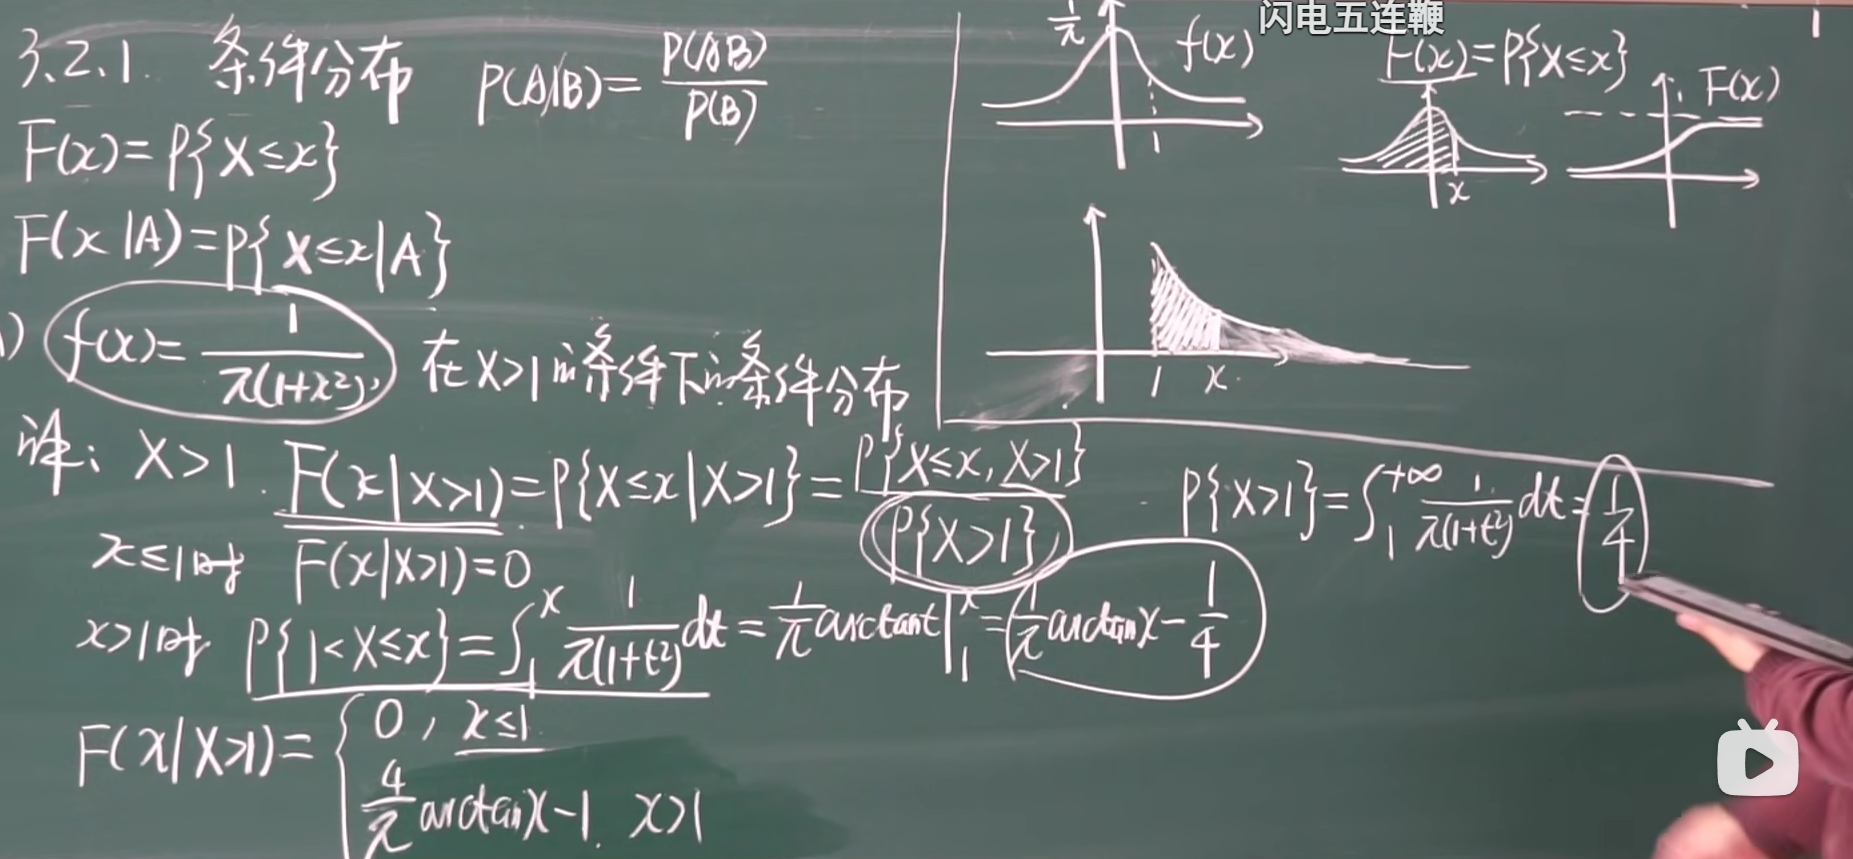 3.2.1. 条件分布 P(A|B)=P(AB)/P(B)
F(x)=P{X≤x}
F(x|A)=P{X≤x|A}
f(x)=1/π(1+x²), 在X>1的条件下的条件分布
详: X>1. F(x|X>1)=P{X≤x|X>1}=P{X≤x, X>1}/P{X>1}
x≤1时 F(x|X>1)=0
x>1时 P{1<X≤x}=∫₁ˣ 1/π(1+t²) dt=1/π arctant|₁ˣ=1/π arctanx-1/4
F(x|X>1)={0, x≤1
4/π arctanx-1. x>1
闪电五连鞭
1/π f(x)
1
F(x)=P{X≤x}
x
F(x)
1 x.
P{X>1}=∫₁⁺∞ 1/π(1+t²) dt=1/4